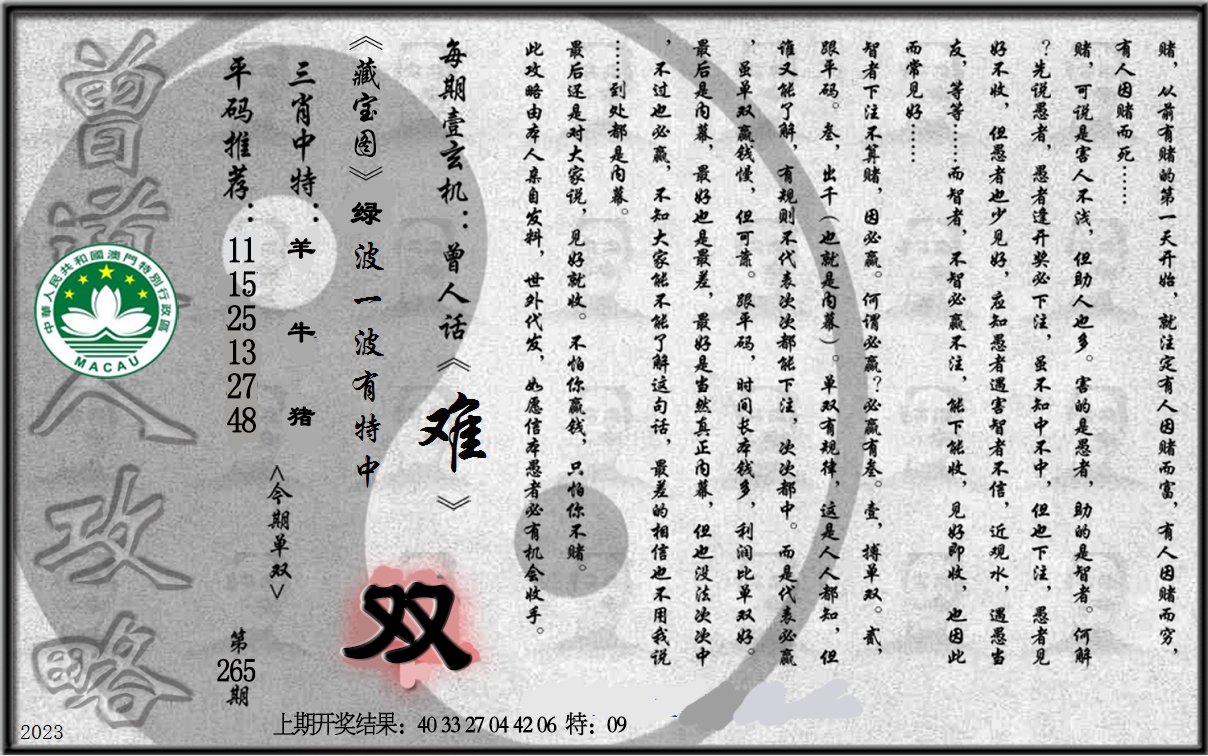 赌，从前有赌的第一天开始，就注定有人因赌而富，有人因赌而穷，
有人因赌而死……
赌，可说是害人不浅，但助人也多。害的是愚者，助的是智者。何解
？先说愚者，愚者逢开奖必下注，虽不知中不中，但也下注，愚者见
好不收，但愚者也少见好，应知愚者遇害智者不信，近观水，遇愚当
友，等等……而智者，不智必赢不注，能下能收，见好即收，也因此
而常见好……
智者下注不算赌，因必赢。何谓必赢？必赢有叁。壹，搏单双。贰，
跟平码。叁，出千（也就是内幕）。单双有规律，这是人人都知，但
谁又能了解，有规则不代表次次都能下注，次次都中。而是代表必赢
，虽单双赢钱慢，但可靠。跟平码，时间长本钱多，利润比单双好。
最后是内幕，最好也是最差，最好是当然真正内幕，但也没法次次中
，不过也必赢，不知大家能不能了解这句话，最差的相信也不用我说
……到处都是内幕。
最后还是对大家说，见好就收。不怕你赢钱，只怕你不赌。
此攻略由本人亲自发料，世外代发，如愿信本愚者必有机会收手。
每期壹玄机：曾人话《难》
双
《藏宝图》绿波一波有特中
三肖中特：羊 牛 猪
<今期单双>
平码推荐：11 15 25 13 27 48
第265期
曾道人攻略
中華人民共和國澳門特別行政區
MACAU
上期开奖结果：40 33 27 04 42 06 特：09
2023